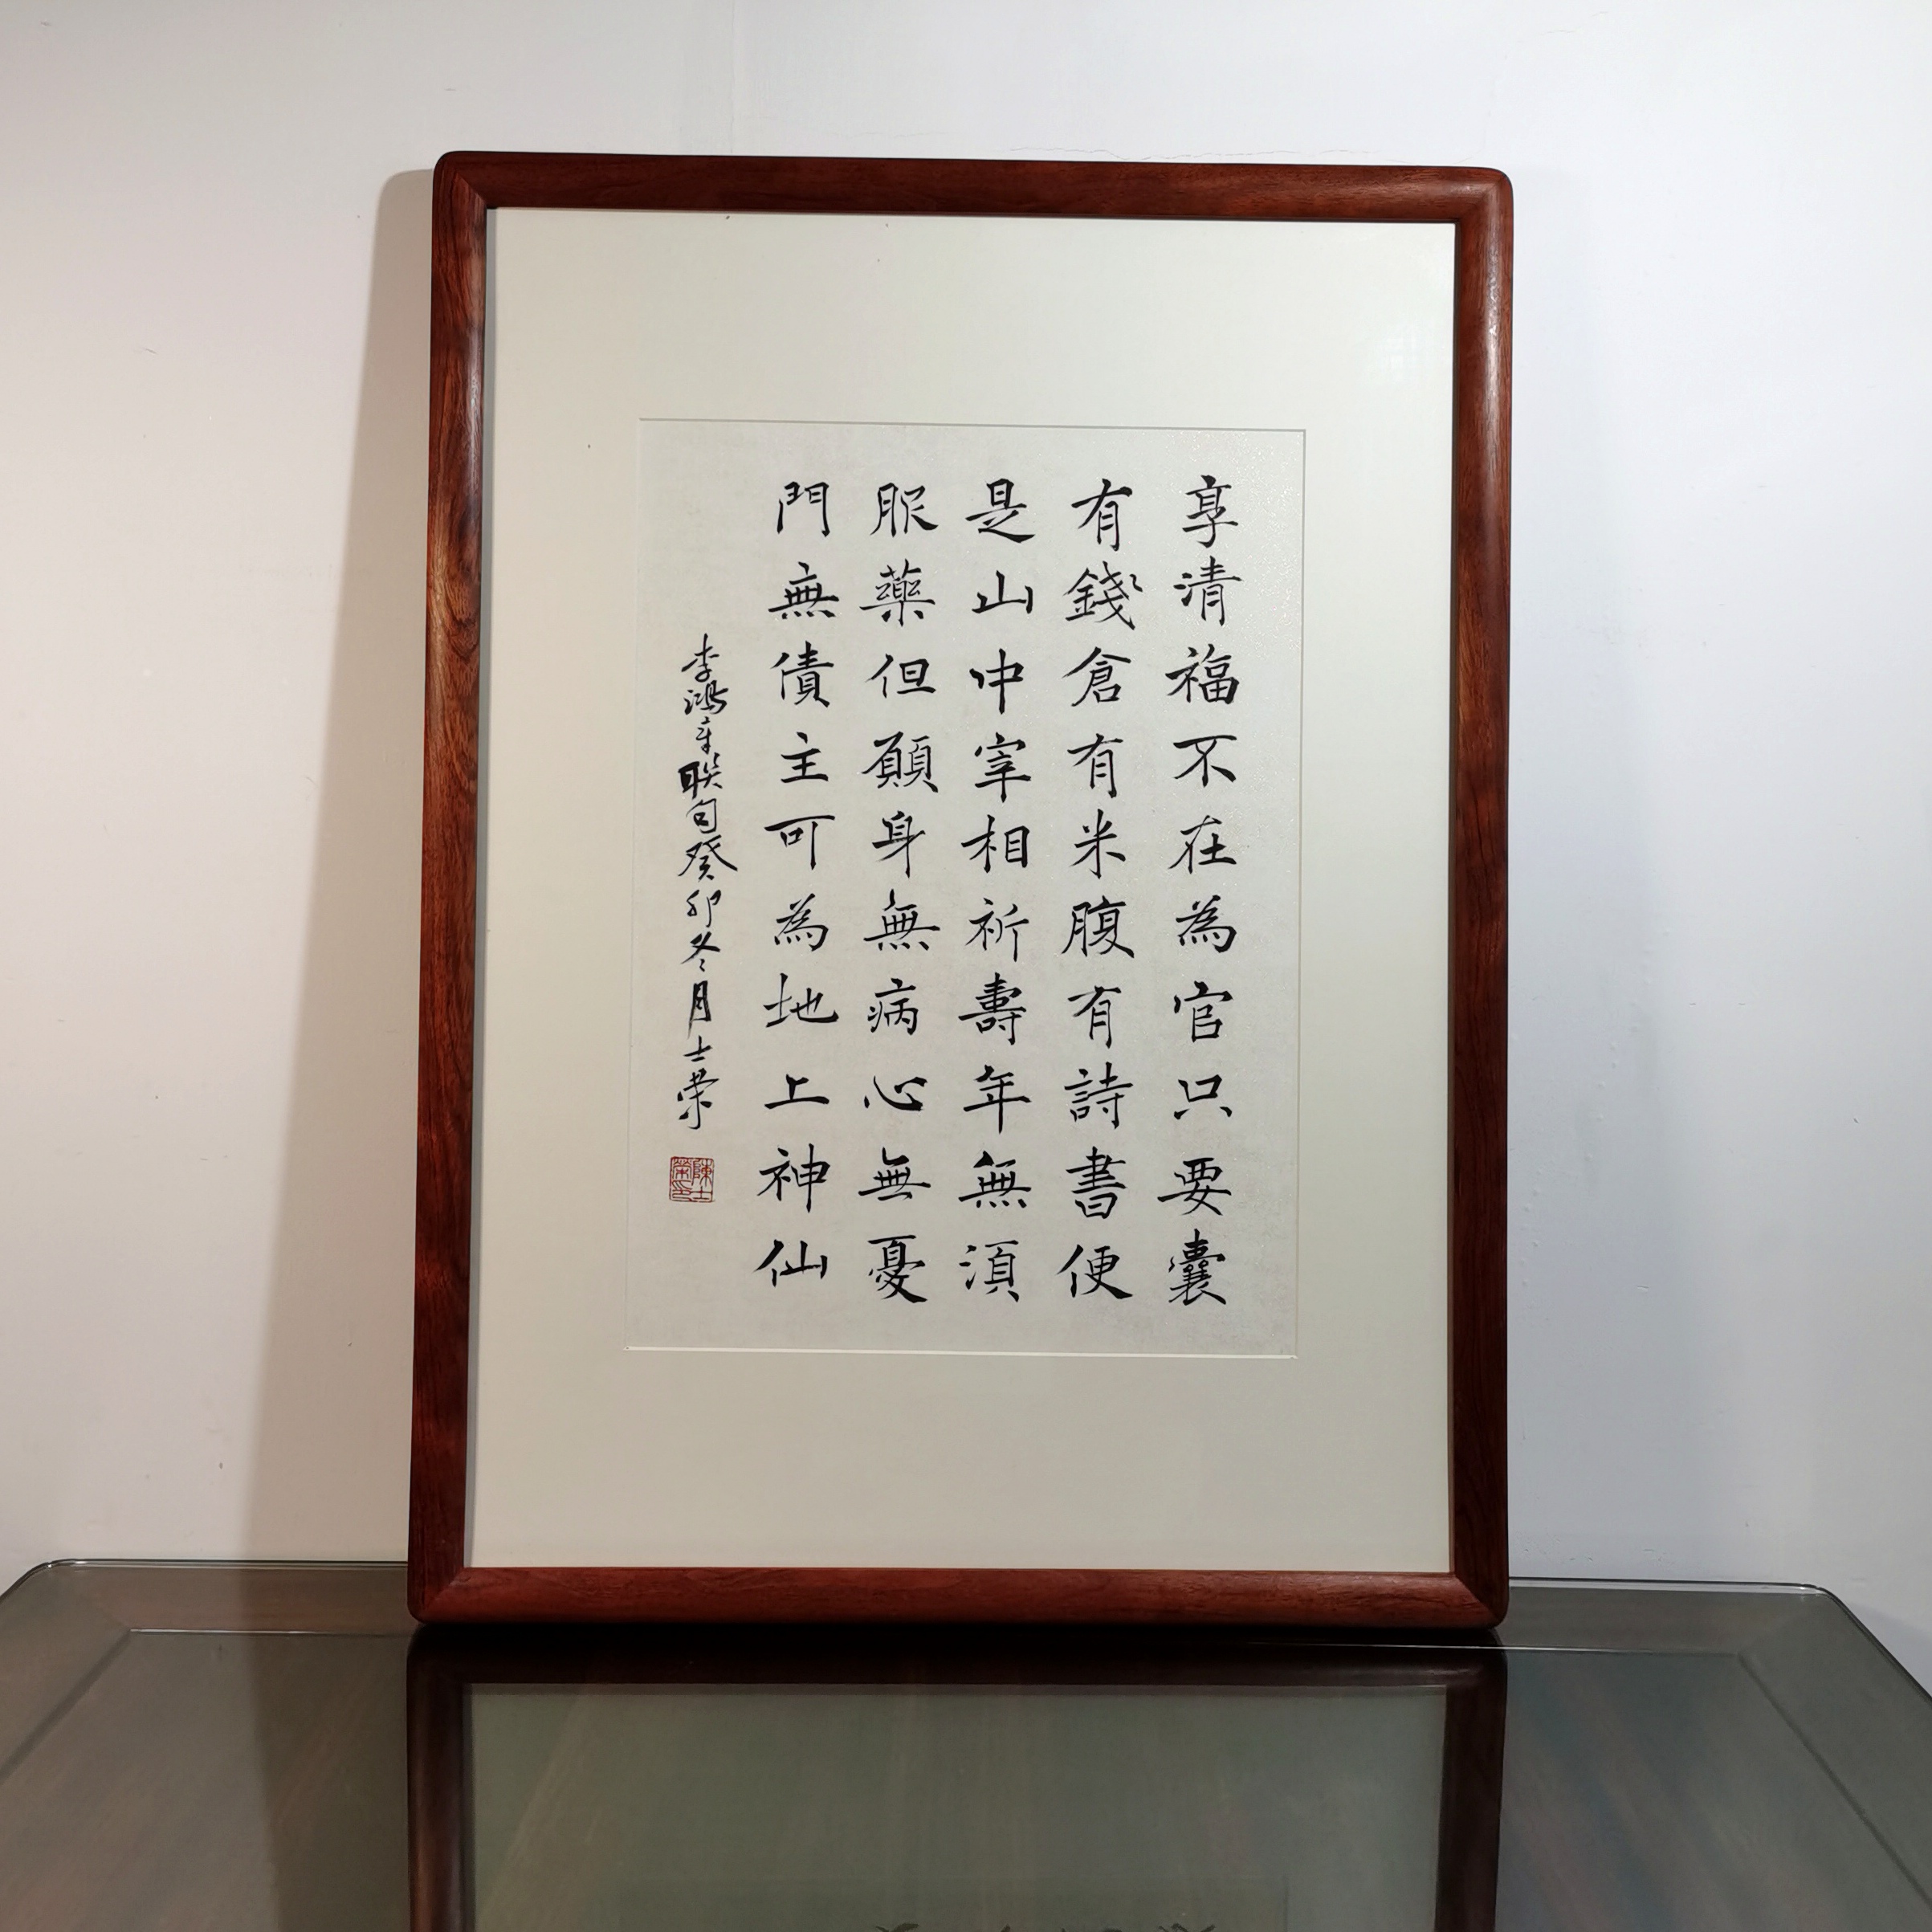 享清福不在為官只要囊
有錢倉有米腹有詩書便
是山中宰相祈壽年無須
服藥但願身無病心無憂
門無債主可為地上神仙
李鴻章联句癸卯冬月士荣
陳士榮印